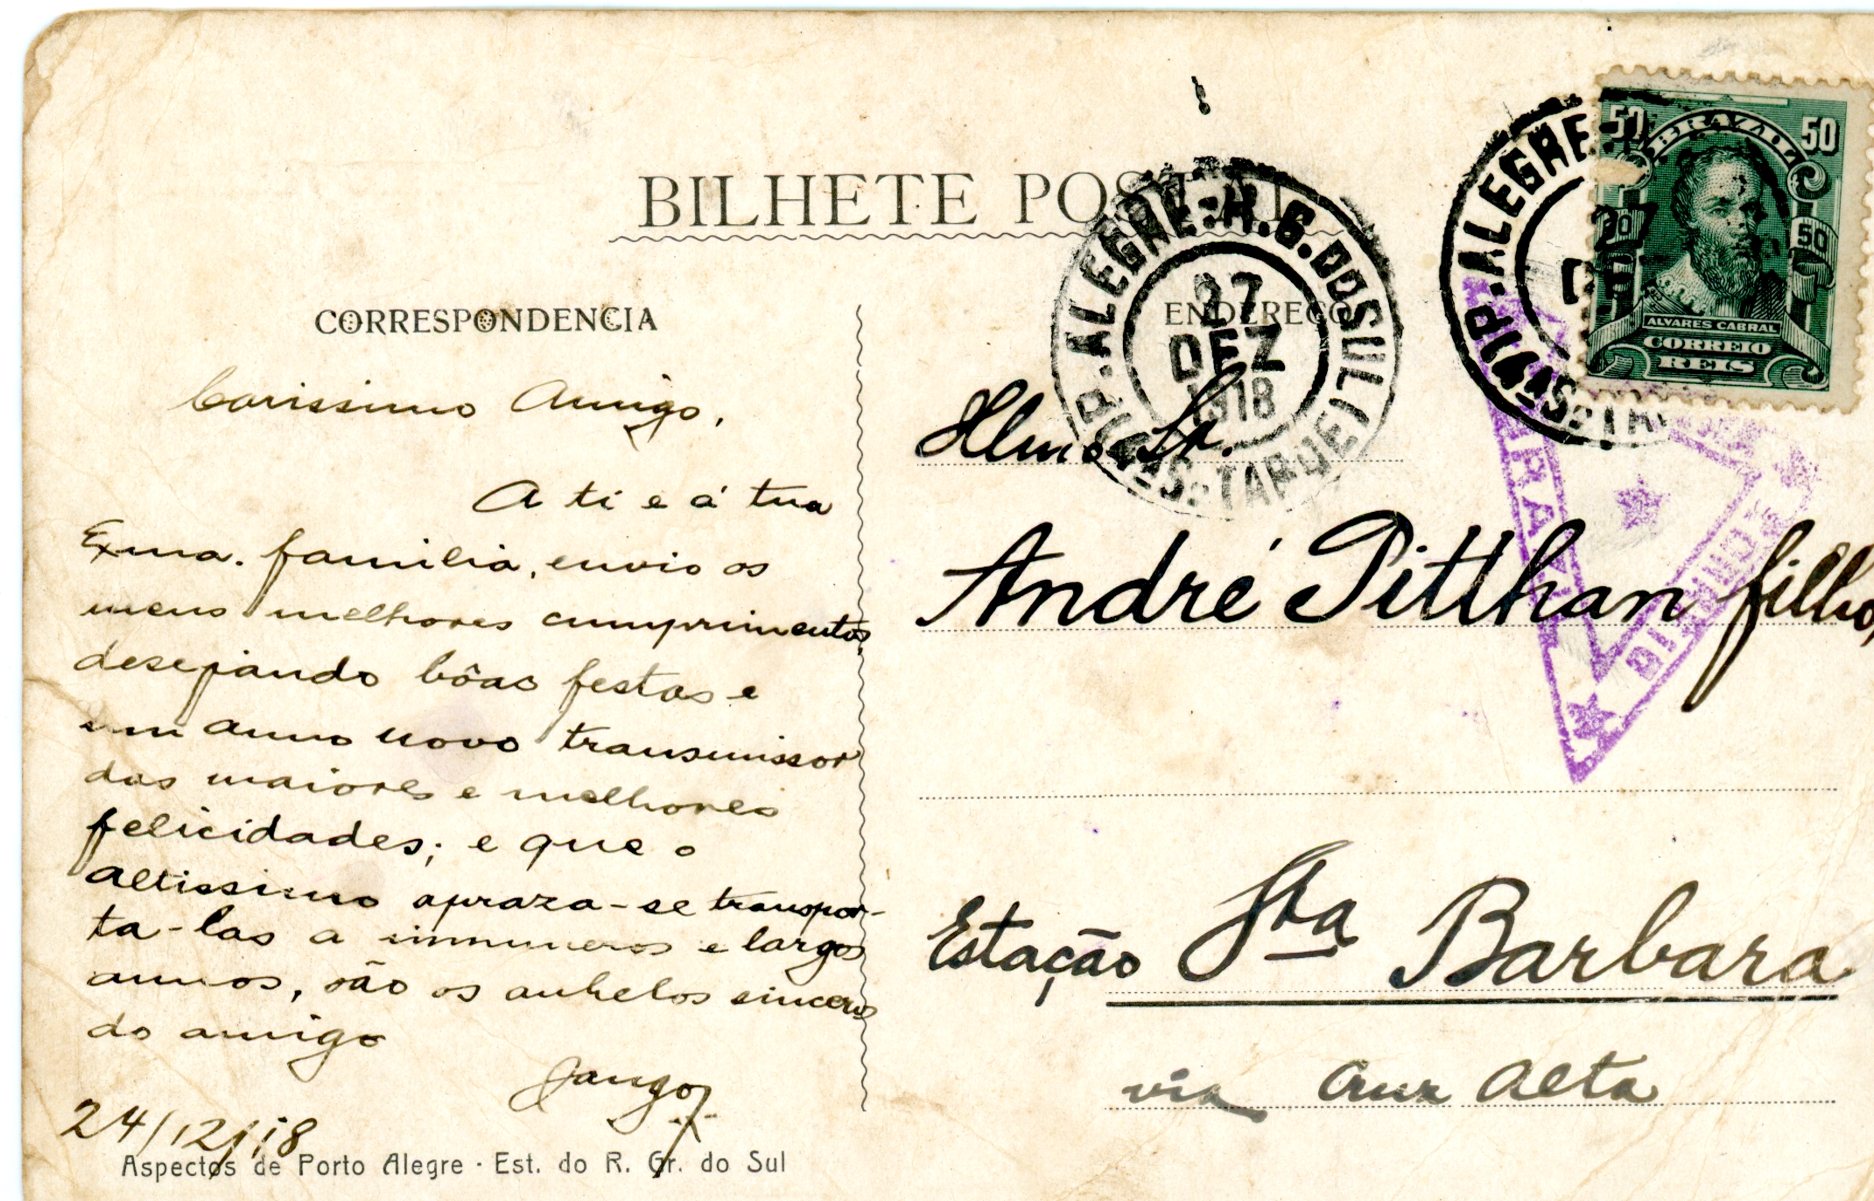 BILHETE POSTAL
CORRESPONDENCIA
Carissimo Amigo,
A ti e á tua
Exma. familia, envio os
meus melhores cumprimentos,
desejando bôas festas e
um anno novo transmissor
das maiores e melhores
felicidades; e que o
altissimo apraza-se transpor-
ta-las a innumeros e largos
annos, são os anhelos sinceros
do amigo
Jango
24/12/18
Aspectos de Porto Alegre · Est. do R. Gr. do Sul
ENDEREÇO
Illmo. Sr.
André Pitthan filho,
Estação Sta Barbara
via Cruz Alta
P. ALEGRE-R.G.DO SUL
27
DEZ
1918
P. ALEGRE
27
50
BRAZIL
50
50
ALVARES CABRAL
CORREIO
REIS